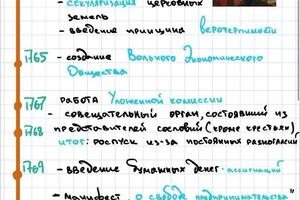 - секуляризация церковных
земель
- введение принципа веротерпимости
1765 - создание Вольного Экономического
Общества
1767 работа Уложенной комиссии
- совещательный орган, состоявший из
1768 представителей сословий (кроме крестьян)
итог: роспуск из-за постоянных разногласий
1769 - введение бумажных денег - ассигнаций
- манифест "о свободе предпринимательства"